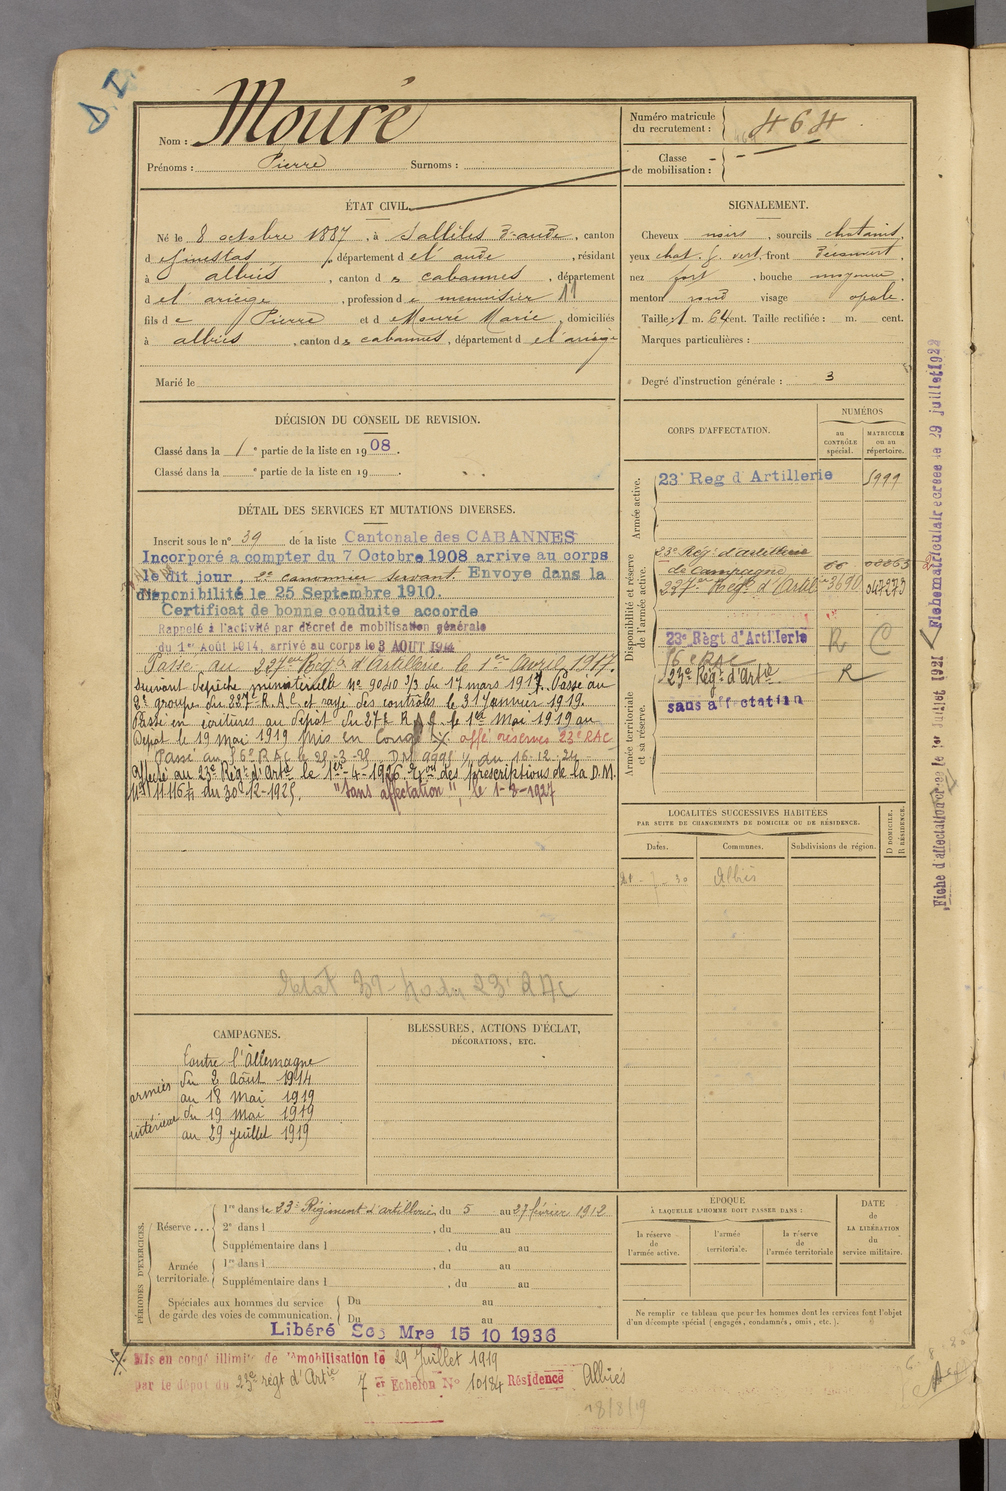 D.I.
Nom : Mouré
Prénoms : Pierre Surnoms :
Numéro matricule du recrutement : 464
Classe de mobilisation :
ÉTAT CIVIL.
Né le 8 octobre 1887, à Salléles d'aude, canton
d e Ginestas, département d e l'aude, résidant
à albiès, canton d es cabannes, département
d e l'ariège, profession d e menuisier 11
fils d e Pierre et d e Mouré Marie, domiciliés
à albiès, canton d es cabannes, département d e l'ariège
Marié le
SIGNALEMENT.
Cheveux noirs, sourcils chatains,
yeux chat. f. vert, front découvert,
nez fort, bouche moyenne,
menton rond visage ovale.
Taille : 1 m. 64 cent. Taille rectifiée : m. cent.
Marques particulières :
Degré d'instruction générale : 3
DÉCISION DU CONSEIL DE REVISION.
Classé dans la 1e partie de la liste en 1908.
Classé dans la e partie de la liste en 19 .
DÉTAIL DES SERVICES ET MUTATIONS DIVERSES.
Inscrit sous le n° 39 de la liste Cantonale des CABANNES
Incorporé a compter du 7 Octobre 1908 arrive au corps
le dit jour, 2e canonnier servant. Envoye dans la
disponibilité le 25 Septembre 1910.
Certificat de bonne conduite accorde
Rappelé à l'activité par décret de mobilisation générale
du 1er Août 1914, arrivé au corps le 3 AOUT 1914
Passé au 227me Régt d'Artillerie le 1er Avril 1917.
suivant dépêche ministérielle N° 9040 3/3 du 17 mars 1917. Passé au
2e groupe du 227e R.A.C. et rayé des contrôles le 31 Janvier 1919.
Passé en écritures au dépôt du 272 R.A.C. le 1er Mai 1919 au
Dépôt le 19 Mai 1919 Mis en Congé affé réserves 23e RAC
Passé au 56e RAC le 25-3-25, DM 9995 1/3 du 16-12-24
Affecté au 23e Régt d'Artie le 1er-4-1926 Xon des prescriptions de la D.M.
N° 11116 du 30-12-1925. "Sans affectation", le 1-3-1927
Etat 31 23e RAC
CORPS D'AFFECTATION.
NUMÉROS
au CONTRÔLE spécial.
MATRICULE ou au répertoire.
Armée active.
23e Reg d Artillerie 5999
Disponibilité et réserve de l'armée active.
23e Régt d'artillerie
de campagne
227me Régt d'Artie 3690 047273
23e Règt d'Artillerie R C
56e RAC
Armée territoriale et sa réserve.
23e Régt d'Artie R
sans affectation
LOCALITÉS SUCCESSIVES HABITÉES
PAR SUITE DE CHANGEMENTS DE DOMICILE OU DE RÉSIDENCE.
Dates. Communes. Subdivisions de région. D DOMICILE. R RÉSIDENCE.
Albiès
CAMPAGNES.
Contre l'Allemagne
armées du 2 Août 1914
au 18 Mai 1919
intérieur du 19 Mai 1919
au 29 Juillet 1919
BLESSURES, ACTIONS D'ÉCLAT,
DÉCORATIONS, ETC.
PÉRIODES D'EXERCICES.
Réserve ... 1re dans le 23e Régiment d'artillerie, du 5 au 27 février 1912
2e dans l , du au
Supplémentaire dans l , du au
Armée territoriale. 1re dans l , du au
Supplémentaire dans l , du au
Spéciales aux hommes du service de garde des voies de communication. Du au
Du au
Libéré Ses Mre 15 10 1936
ÉPOQUE
À LAQUELLE L'HOMME DOIT PASSER DANS :
la réserve de l'armée active.
l'armée territoriale.
la réserve de l'armée territoriale
DATE de LA LIBÉRATION du service militaire.
Ne remplir ce tableau que pour les hommes dont les services font l'objet
d'un décompte spécial (engagés, condamnés, omis, etc.).
Mis en congé illimité de démobilisation le 29 Juillet 1919
par le dépôt du 23e régt d'Artie 7 er Echelon N° 10184 Résidence Albiès
18/8/19
Fiche d'affectation créée le 1er Juillet 1921
Fiche matriculaire créée le 29 juillet 1922